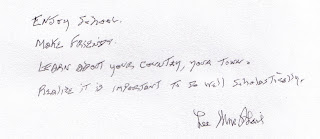 Enjoy School.
Make Friends.
Learn about your country, your town.
Realize it is important to do well scholastically.
Lee